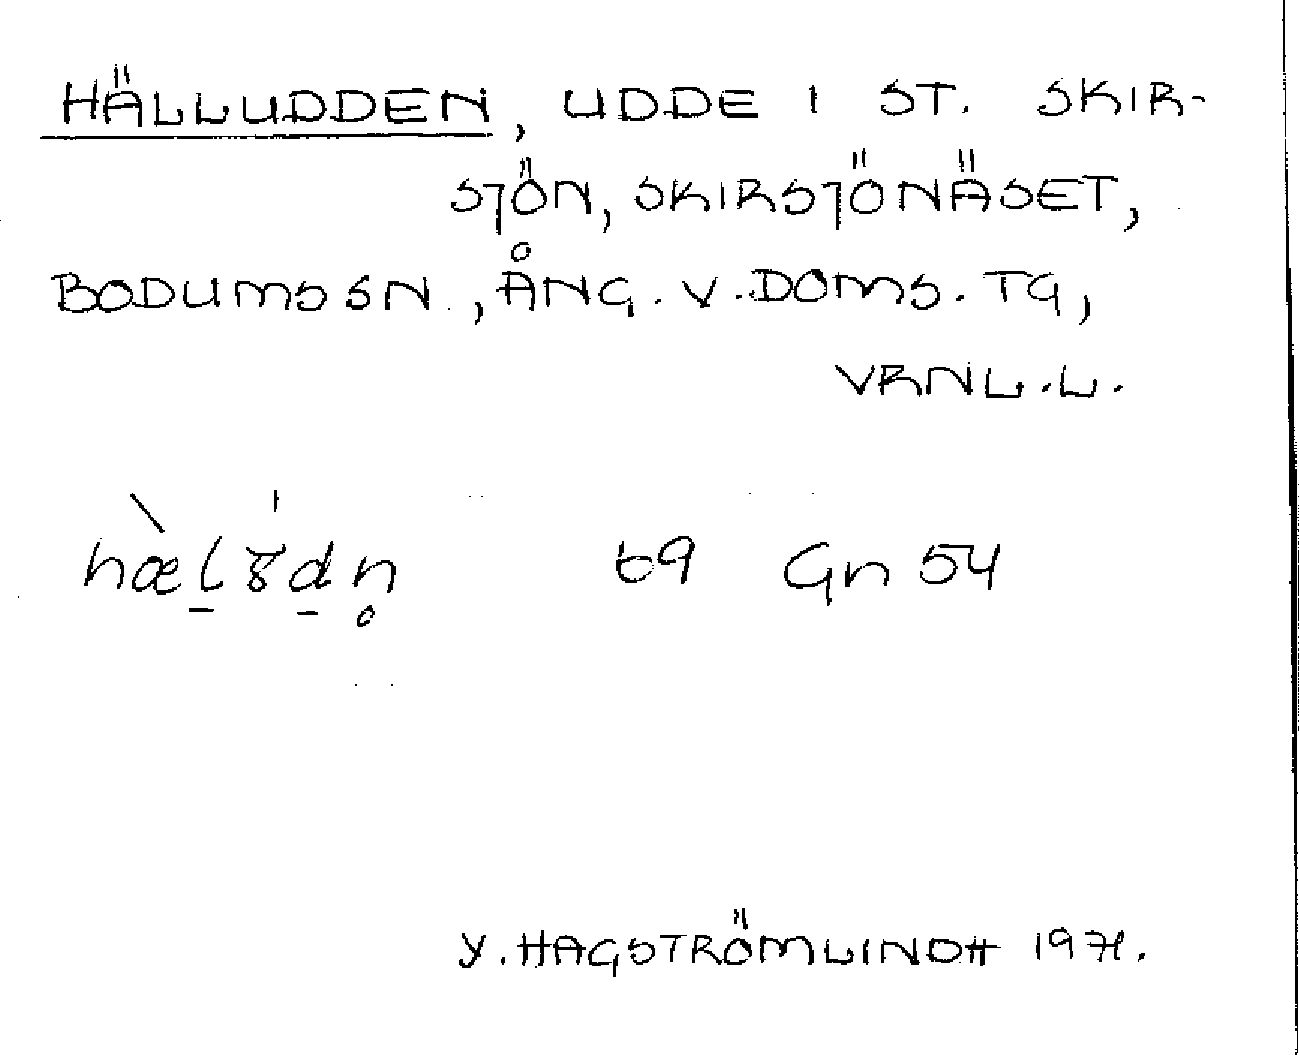 HÄLLUDDEN, UDDE I ST. SKIR-
SJÖN, SKIRSJÖNÄSET,
BODUMS SN., ÅNG. V. DOMS. TG,
VRNL. L.
hæ̀l̠8̍d̠n̥ t9 Gn 54
Y. HAGSTRÖMLINDH 1971.